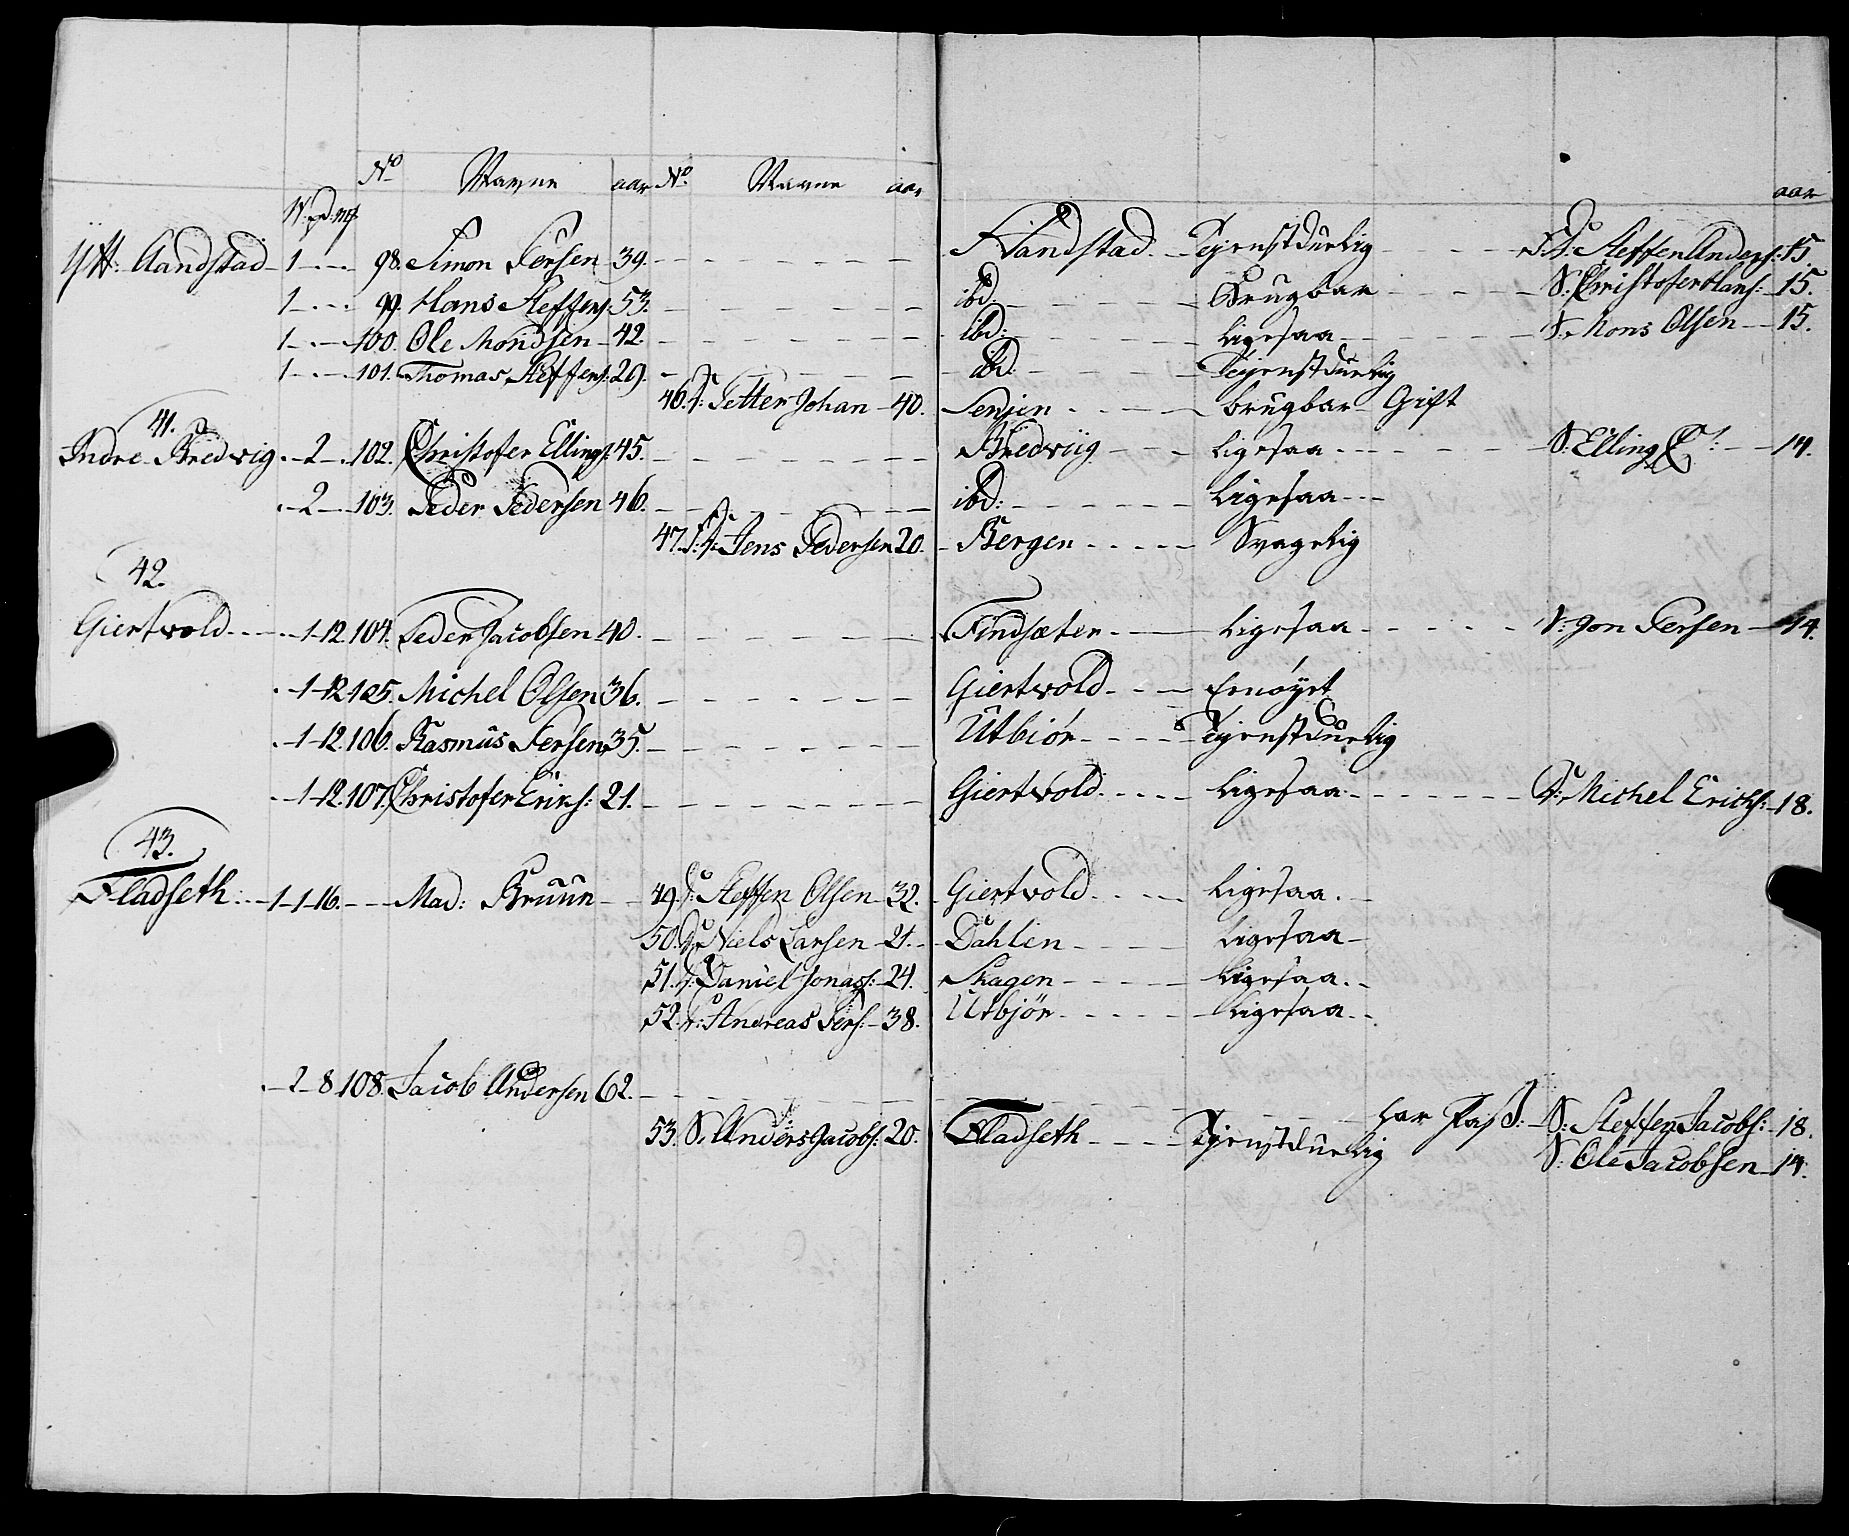 No Navne aar No Navne aar aar
W: pd: mk
Ytt: Aandstad 1 98. Simon Persen 39. Aandstad Tjenstduelig S: Steffen Anders: 15.
1 99. Hans Steffens: 53. ibd: Brugbar S: Christofer Hans: 15.
1 100. Ole Monsen 42. ibd: ligesaa S. Mons Olsen 15.
1 101. Thomas Steffens: 29. ibd: Tjenstduelig
46. Petter Johan 40. Senjen brugbar Gift
41.
Indre Bredvig 2 102. Christofer Ellings: 45. Bredviig ligesaa S: Elling C: 14.
2 103. Peder Pedersen 46. ibd: ligesaa
47. Jens Pedersen 20. Bergen Svagelig
42.
Giertvold 1-12 104. Peder Jacobsen 40. Findsæter ligesaa S: Jon Persen 14.
1-12 105. Michel Olsen 36. Giertvold fornøyet
1-12 106. Rasmus Persen 35. Utbiör Tjenstduelig
1-12 107. Christofer Erics: 21. Giertvold ligesaa Michel Erichs: 18.
43.
Fladseth: 1-1-16. Mad: Bruun 49. Steffen Olsen 32. Giertvold ligesaa
50. Niels Larsen 21. Dahlen ligesaa
51. Daniel Jonas: 24. Skagen ligesaa
52. Andreas Pers: 38. Utbjör ligesaa
2-8 108. Jacob Andersen 62.
53. S. Anders Jacobs: 20. Fladseth Tjenstduelig har Pass: S: Steffen Jacobs: 18.
S: Ole Jacobsen 14.